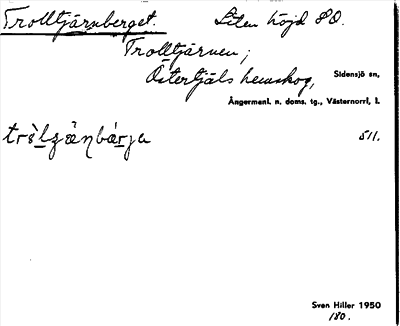 Trolltjärnberget. Liten höjd SO.
Trolltjärnen;
Östertjäls hemskog, Sidensjö sn,
Ångermanl. n. doms. tg., Västernorrl. l.
511.
Sven Hiller 1950
180.